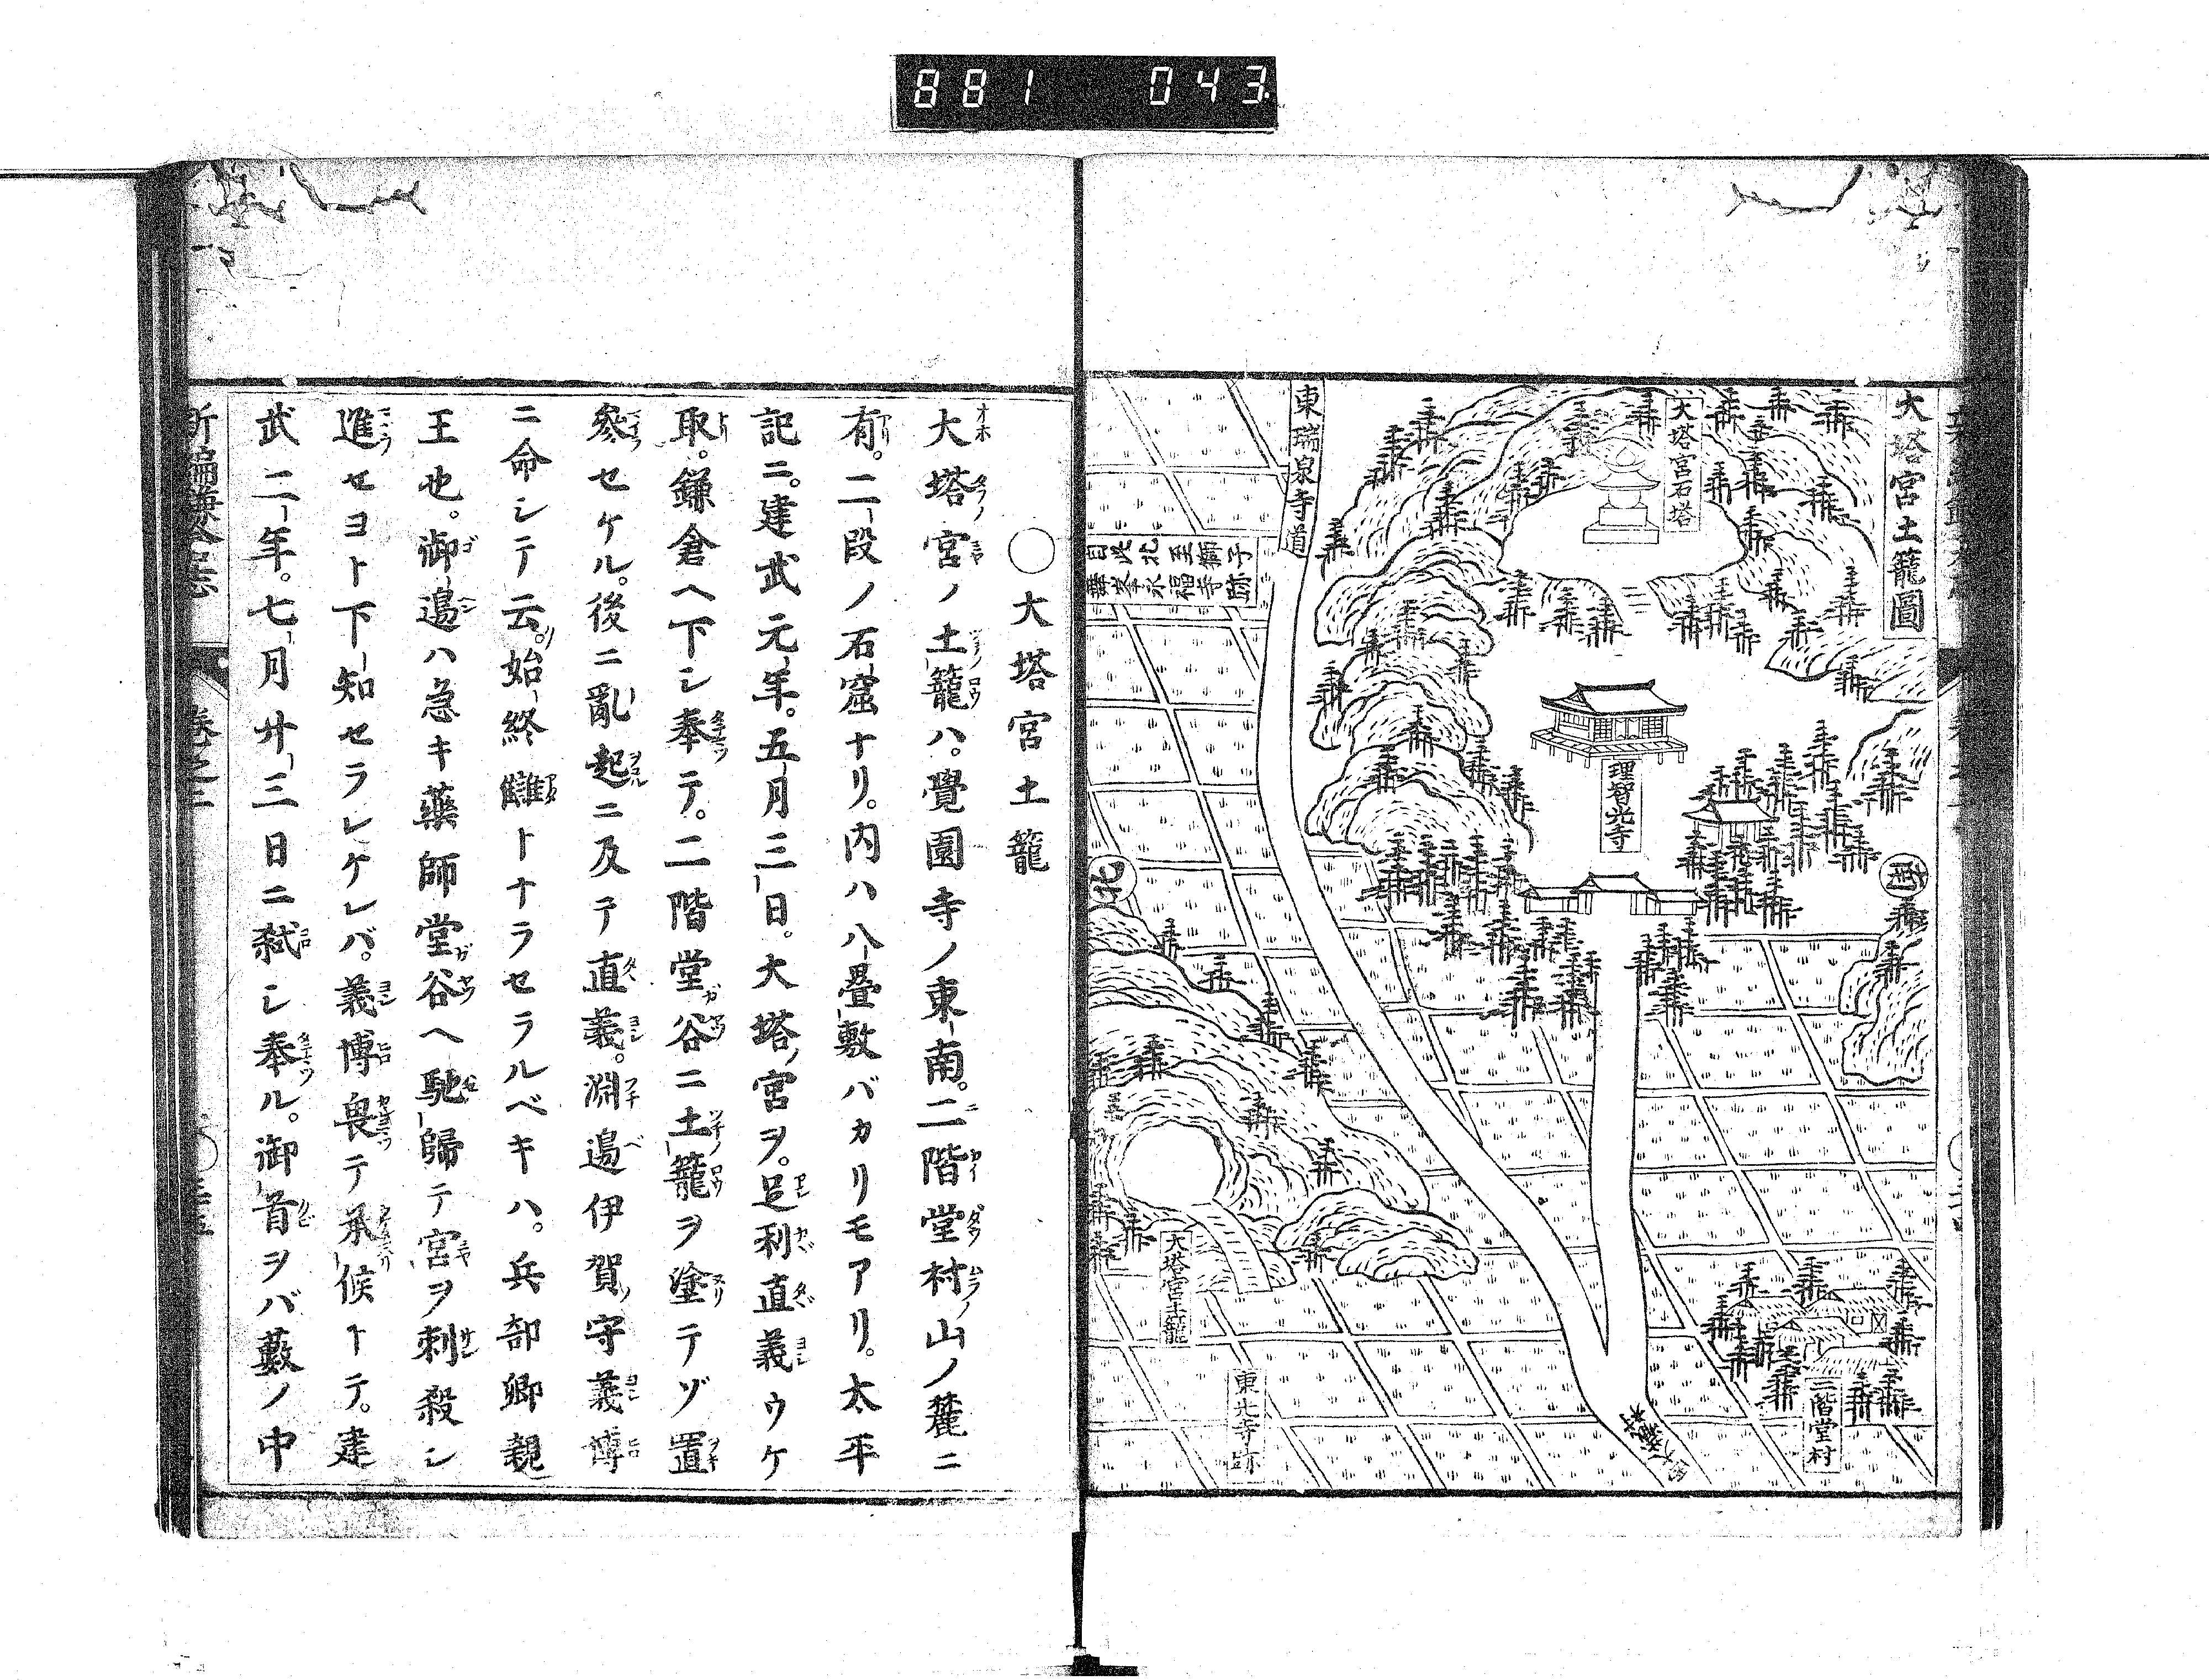 881 043
大塔宮土籠圖
大塔宮石塔
東瑞泉寺道
自此北至獅子
舞峯永福寺跡
理智光寺
北
大塔宮土籠
東光寺跡
二階堂村
○大塔宮土籠
大塔宮ノ土籠ハ。覺園寺ノ東南。二階堂村ノ山ノ麓ニ
有。二段ノ石窟ナリ。内ハ八疊敷バカリモアリ。太平
記ニ。建武元年。五月三日。大塔ノ宮ヲ。足利直義ウケ
取。鎌倉ヘ下シ奉テ。二階堂谷ニ土籠ヲ塗テゾ置
參セケル。後ニ亂起ニ及テ直義。淵邉伊賀ノ守義博
ニ命シテ云。始終讎トナラセラルベキハ。兵部卿親
王也。御邉ハ急キ藥師堂谷ヘ馳歸テ宮ヲ刺殺シ
進セヨト下知セラレケレバ。義博畏テ承候トテ。建
武二年。七月廿三日ニ弑シ奉ル。御首ヲバ藪ノ中
新編鎌倉志 卷之二